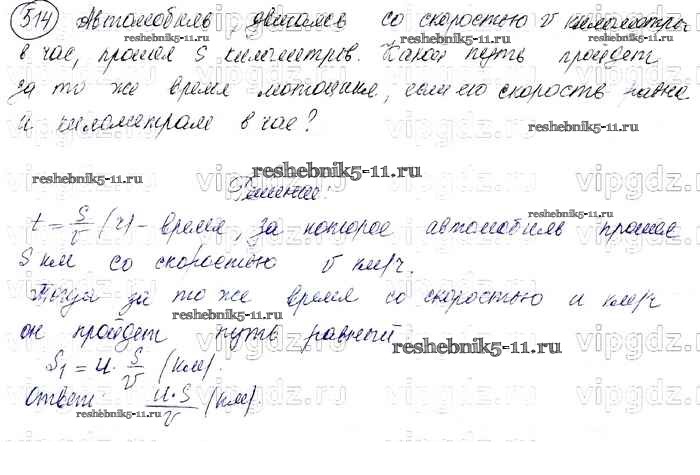 514 Автомобиль, двигаясь со скоростью v километров
в час, прошел S километров. Какой путь пройдет
за то же время мотоцикл, если его скорость равна
и километрам в час?
reshebnik5-11.ru
reshebnik5-11.ru
reshebnik5-11.ru
vipgdz.ru
Решение:
t = S/v (ч) - время, за которое автомобиль прошел
S км со скоростью v км/ч.
reshebnik5-11.ru
Тогда за то же время со скоростью и км/ч
reshebnik5-11.ru
он пройдет путь равный
reshebnik5-11.ru
S₁ = и · S/v (км).
Ответ: и·S/v (км).
reshebnik5-11.ru
reshebnik5-11.ru